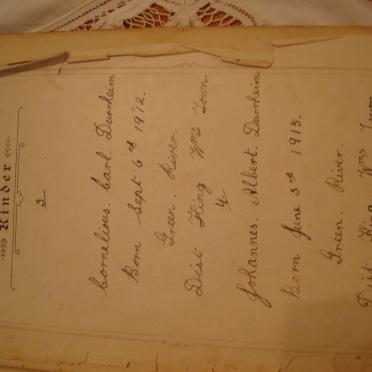 Kinder
3
Cornelious. Carl. Durnheim
Born Sept 6th 1912.
Green. River.
Dist King Wms Town.
4
Johannes. Albert. Durnheim
Born June 3rd 1915.
Green. River.
Dist King Wms Town